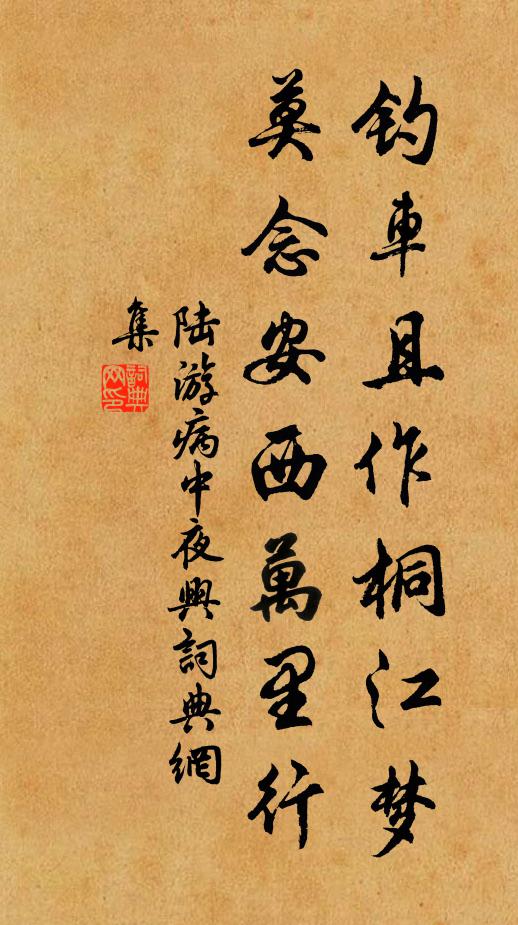 钓車且作桐江梦
莫念安西萬里行
陆游病中夜興詞典網
集
詞典网印